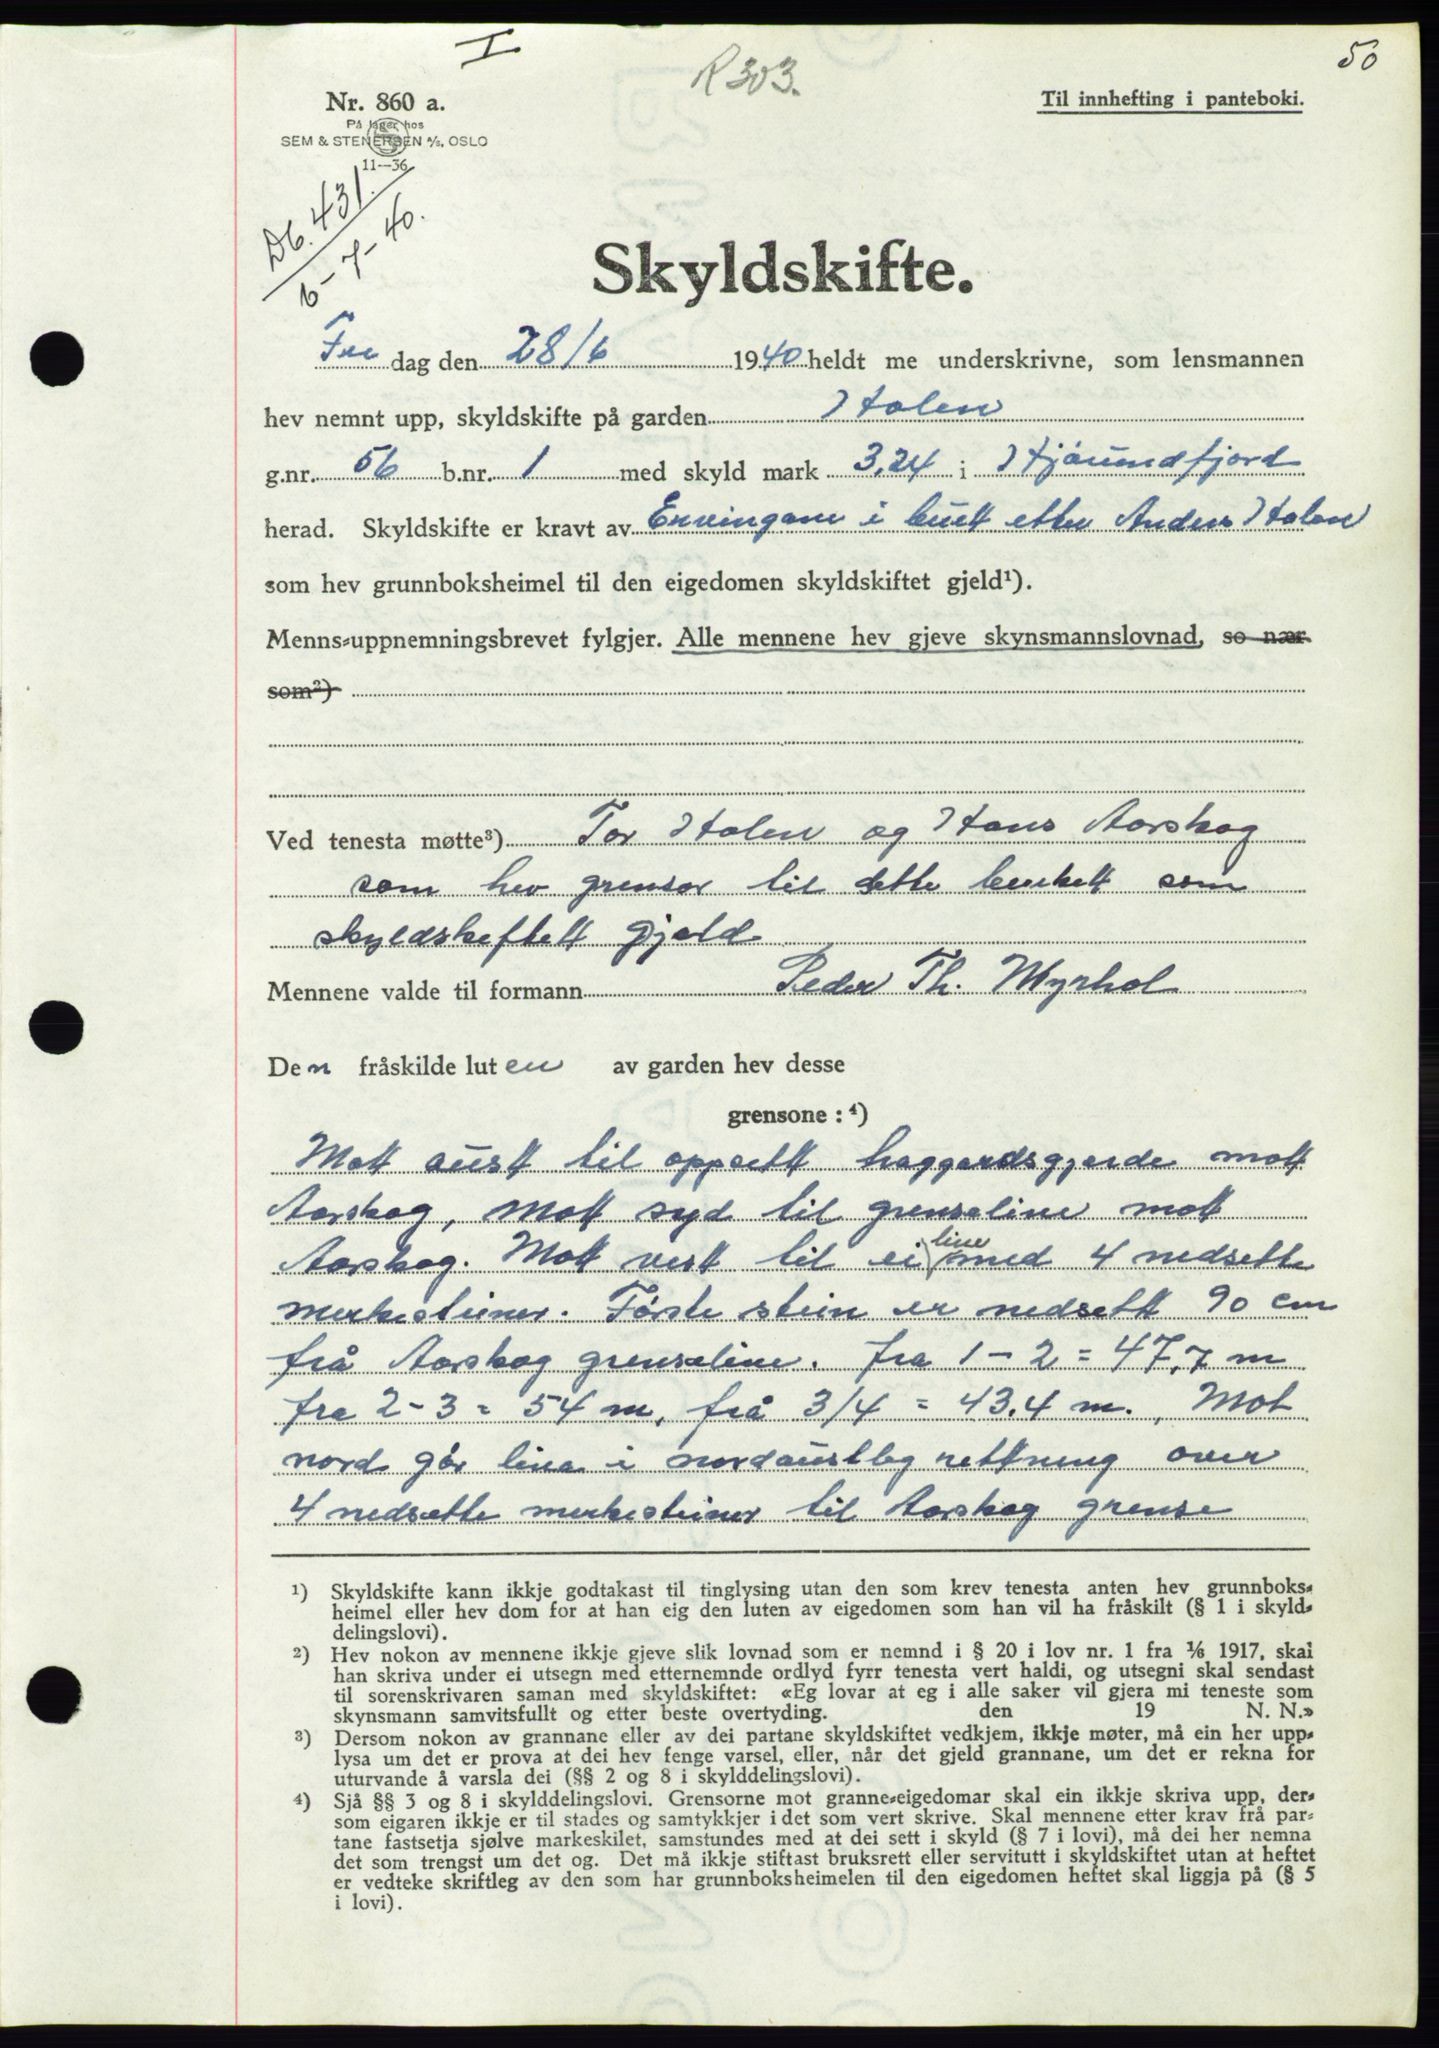 I
R 303.
50
Nr. 860 a.
På lager hos
SEM & STENERSEN A/S, OSLO
11—36
Til innhefting i panteboki.
Db. 431.
6-7-40.
Skyldskifte.
Fre dag den 28/6 1940 heldt me underskrivne, som lensmannen
hev nemnt upp, skyldskifte på garden Holen
g.nr. 56 b.nr. 1 med skyld mark 3,24 i Hjørundfjord
herad. Skyldskifte er kravt av Ervingane i buet etter Anders Holen
som hev grunnboksheimel til den eigedomen skyldskiftet gjeld¹).
Menns-uppnemningsbrevet fylgjer. Alle mennene hev gjeve skynsmannslovnad, so nær
som²)
Ved tenesta møtte³) Tor Holen og Hans Aarskog
som hev grensor til dette bruket som
skyldskeftett gjeld
Mennene valde til formann Peder Th. Myrhol
Den fråskilde luten av garden hev desse
grensone : ⁴)
Mott aust til oppsett haggardsgjerde mott
Aarskog, Mott syd til grenseline mott
Aarskog. Mott vest til ei line med 4 nedsette
merkesteiner. Første stein er nedsett 90 cm
frå Aarskog grenseline. fra 1 - 2 = 47,7 m
fra 2 - 3 = 54 m, frå 3/4 = 43.4 m., Mot
nord går lina i nordaustleg rettning over
4 nedsette merkesteiner til Aarskog grense
¹) Skyldskifte kann ikkje godtakast til tinglysing utan den som krev tenesta anten hev grunnboks-
heimel eller hev dom for at han eig den luten av eigedomen som han vil ha fråskilt (§ 1 i skyld-
delingslovi).
²) Hev nokon av mennene ikkje gjeve slik lovnad som er nemnd i § 20 i lov nr. 1 fra 1/6 1917, skal
han skriva under ei utsegn med etternemnde ordlyd fyrr tenesta vert haldi, og utsegni skal sendast
til sorenskrivaren saman med skyldskiftet: «Eg lovar at eg i alle saker vil gjera mi teneste som
skynsmann samvitsfullt og etter beste overtyding. den 19 N. N.»
³) Dersom nokon av grannane eller av dei partane skyldskiftet vedkjem, ikkje møter, må ein her upp-
lysa um det er prova at dei hev fenge varsel, eller, når det gjeld grannane, um det er rekna for
uturvande å varsla dei (§§ 2 og 8 i skylddelingslovi).
⁴) Sjå §§ 3 og 8 i skylddelingslovi. Grensorne mot granne-eigedomar skal ein ikkje skriva upp, der-
som eigaren ikkje er til stades og samtykkjer i det som vert skrive. Skal mennene etter krav frå par-
tane fastsetja sjølve markeskilet, samstundes med at dei sett i skyld (§ 7 i lovi), må dei her nemna
det som trengst um det og. Det må ikkje stiftast bruksrett eller servitutt i skyldskiftet utan at heftet
er vedteke skriftleg av den som har grunnboksheimelen til den eigedomen heftet skal liggja på (§ 5
i lovi).